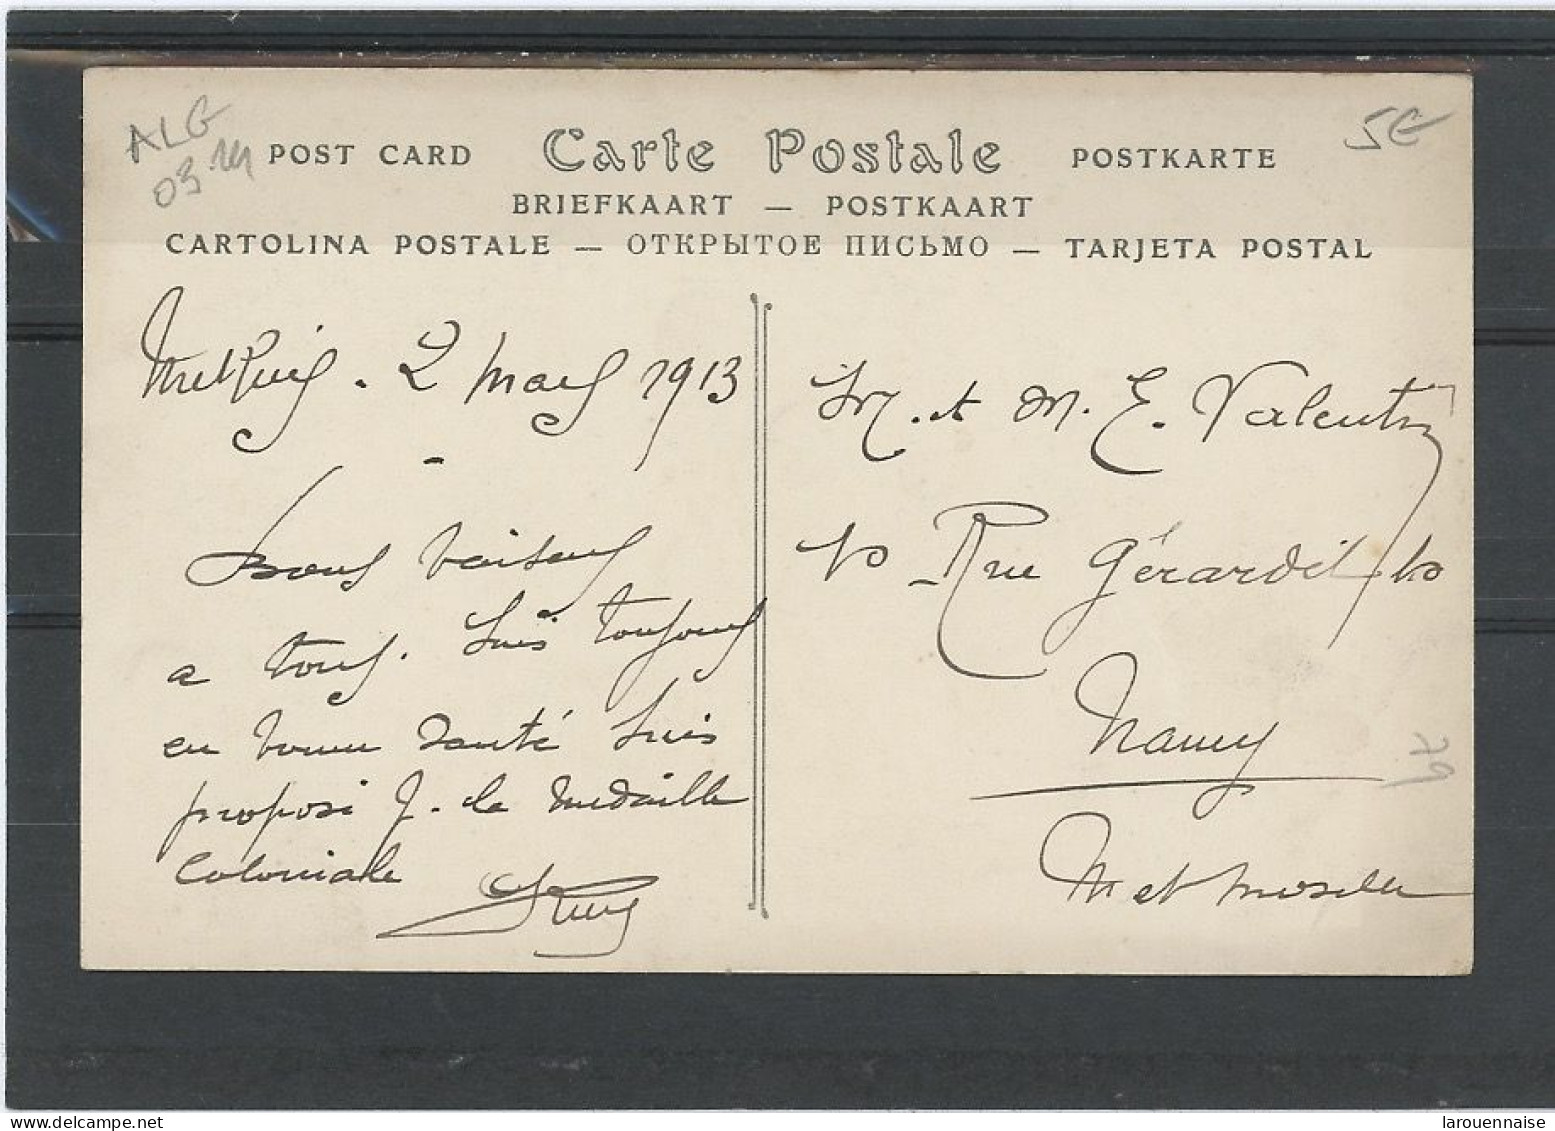 ALG
5€
POST CARD Carte Postale POSTKARTE
BRIEFKAART — POSTKAART
CARTOLINA POSTALE — ОТКРЫТОЕ ПИСЬМО — TARJETA POSTAL
2 Mars 1913
-
Bons baisers
a tous. Suis toujours
en bonne santé Suis
proposé p. la medaille
Coloniale
M. et M. E. Valentin
10 Rue Gérardet 10
Nancy
M et Moselle
79
larouennaise